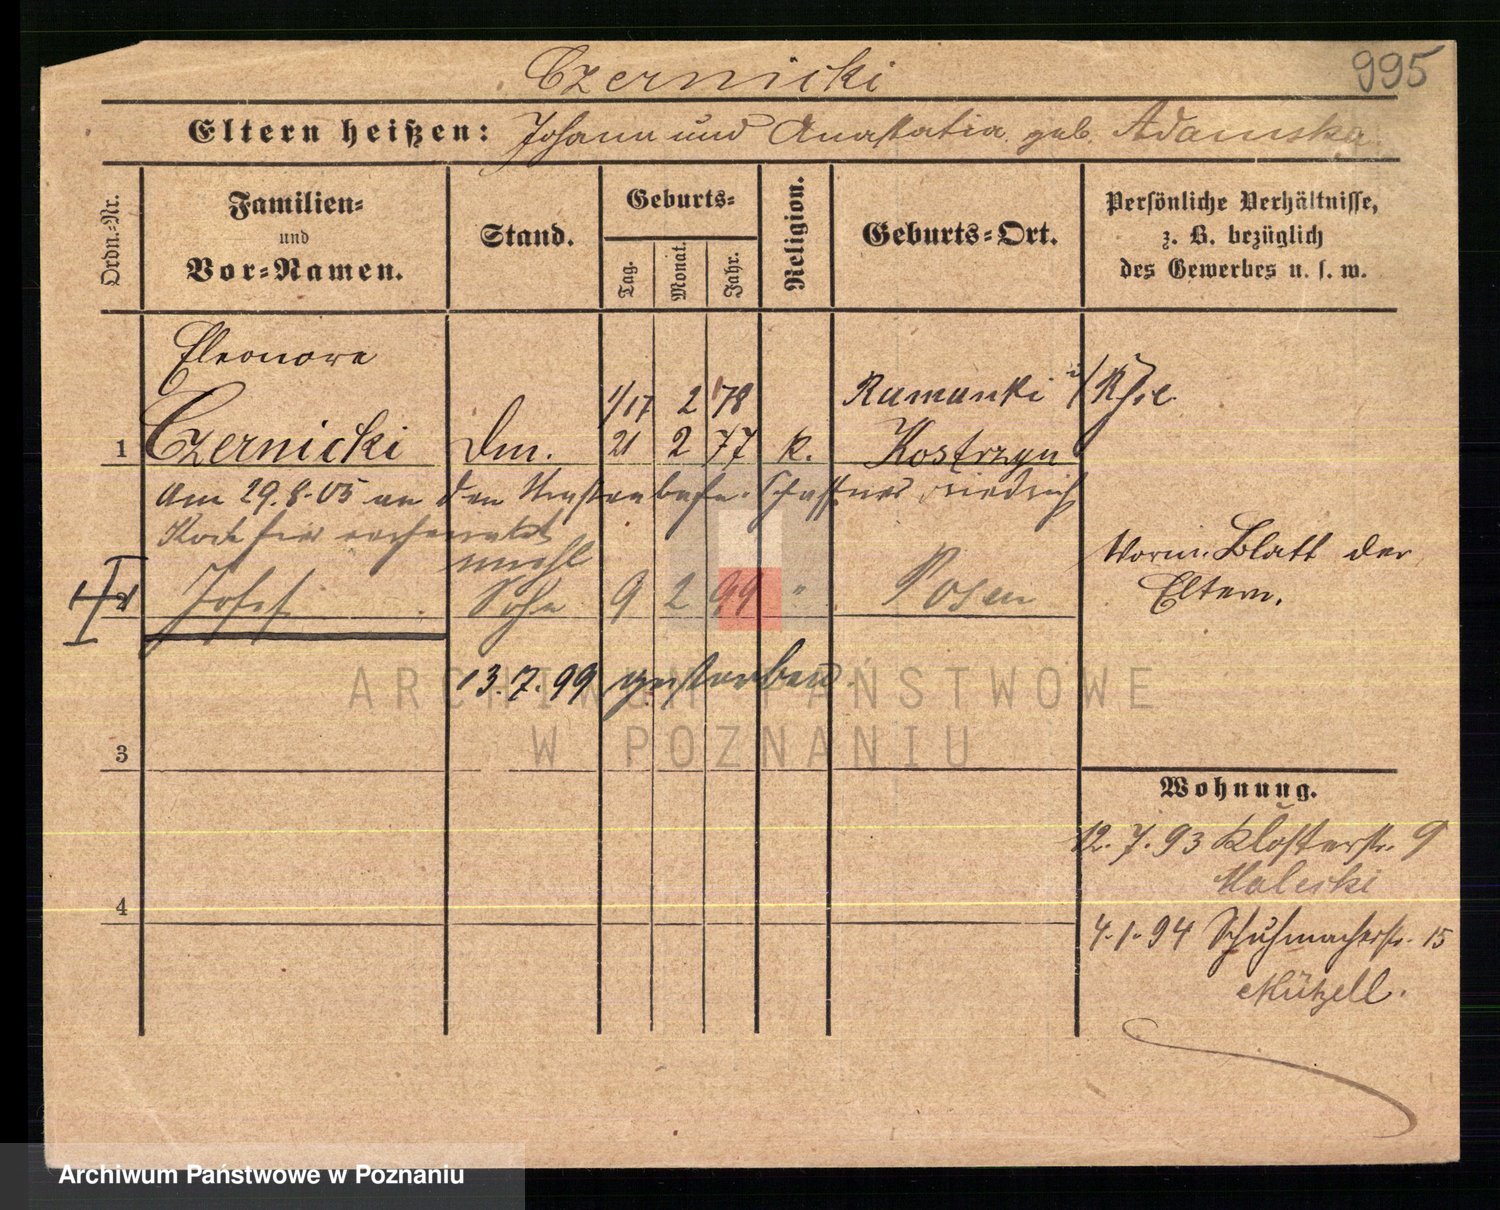 Czernicki
995
Eltern heißen: Johann und Anastatia geb. Adamska
Ordn.-Nr.
Familien- und Vor-Namen.
Stand.
Geburts-
Tag.
Monat.
Jahr.
Religion.
Geburts-Ort.
Persönliche Verhältnisse,
z. B. bezüglich
des Gewerbes u. s. w.
Eleonore
1/17 2 78 Ramunki
1 Czernicki Dm. 21 2 77 k. Kostrzyn
Am 29.8.05 an den Straßenbahn-Schaffner Friedrich
hier verheiratet
2 Josef Sohn 9 2 99 " Posen
13.7.99 gestorben.
Vorm. Blatt der
Eltern.
3
4
Wohnung.
12.7.93 Klosterstr. 9
Maleski
4.1.94 Schuhmacherstr. 15
Mützell.
ARCHIWUM PAŃSTWOWE
W POZNANIU
Archiwum Państwowe w Poznaniu